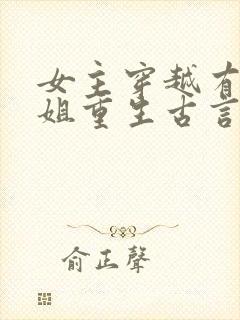 女主穿越有
姐重生古言
俞正聲